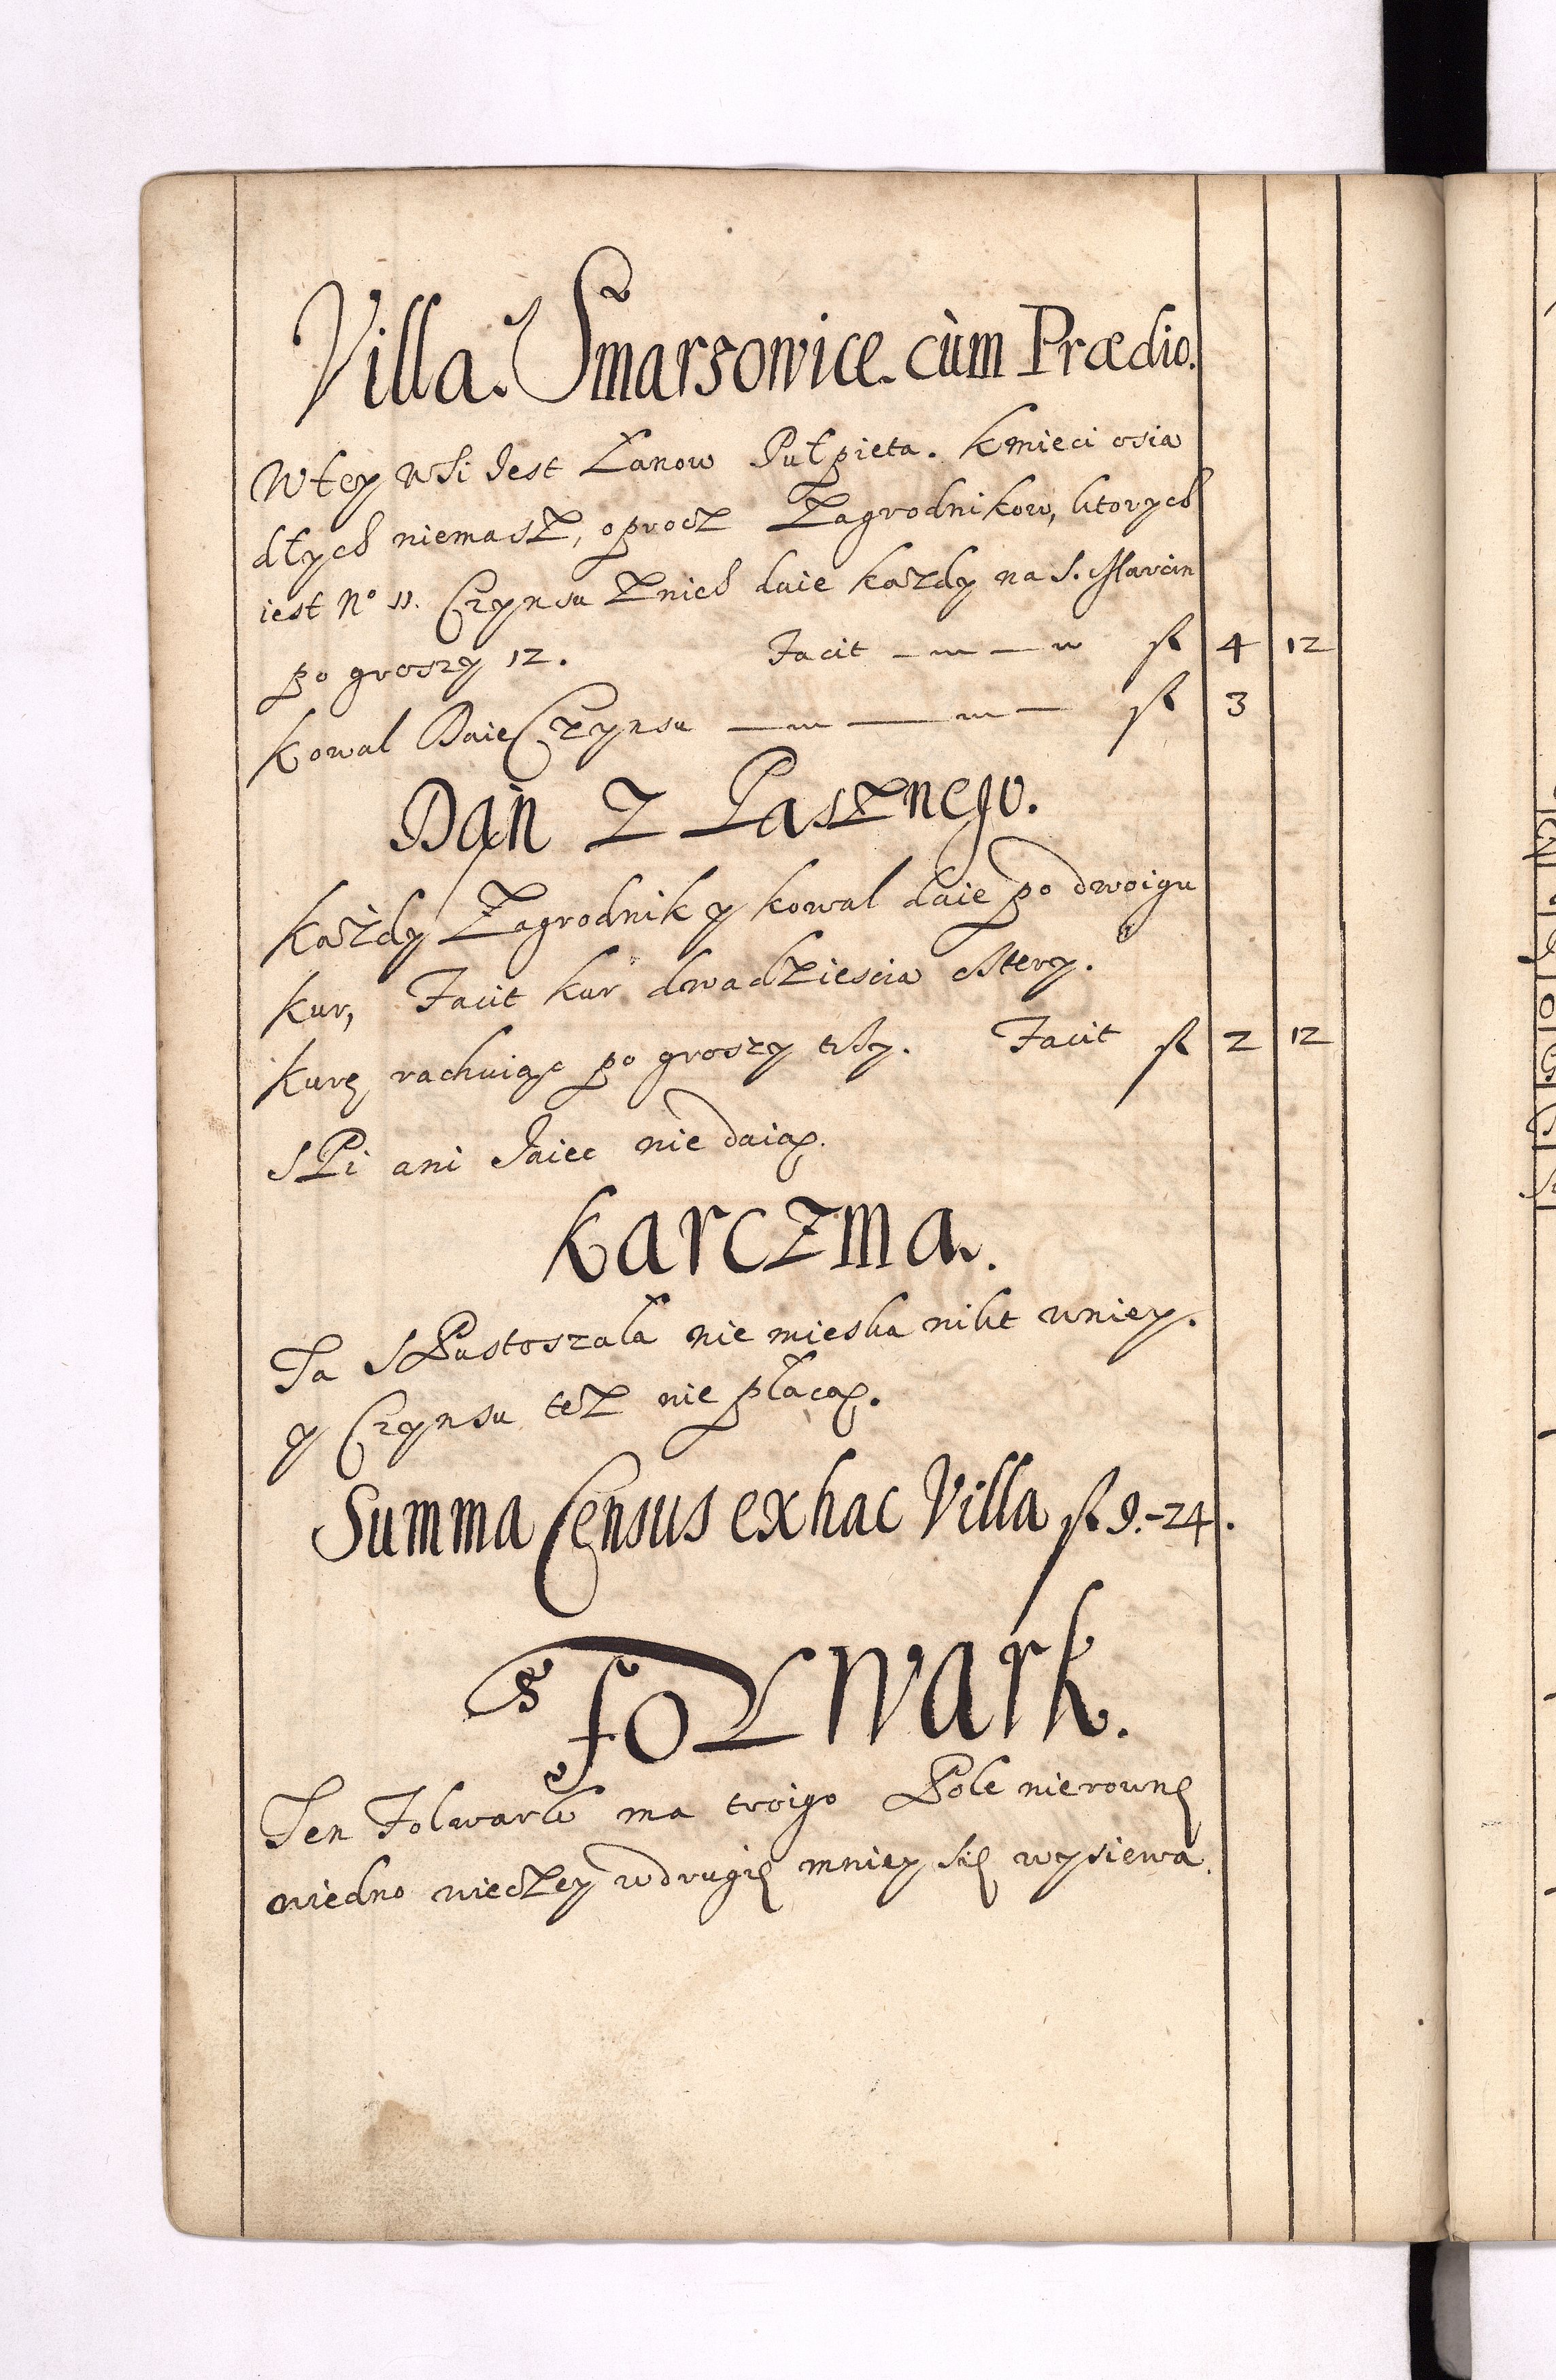 Villa. Smarzowice. cùm Prædio.
W tey wsi Jest Łanow Pułpięta. Kmieci osia
dłych niemasz, oprocz Zagrodnikow, ktorych
iest No 11. Czynsu znich daie każdy na S. Marcin
po groszy 12. Facit fl 4 12
Kowal Daie Czynsu fl 3
Dań Z Pasznego.
Każdy Zagrodnik y kowal daie po dwoigu
kur, Facit kur dwadziescia cztery.
Kurę rachuiąc po groszy trzy. Facit fl 2 12
Spi ani Jaiec nie daią.
Karczma.
Ta Spustoszała nie mieska nikt wniey.
y Czynsu tez nie płacą.
Summa Census ex hac Villa fl 9.-24.
Folwark.
Ten Folwark ma troigo Pole nierownę
wiedno wieczey wdrugię mniey się wysiewa.